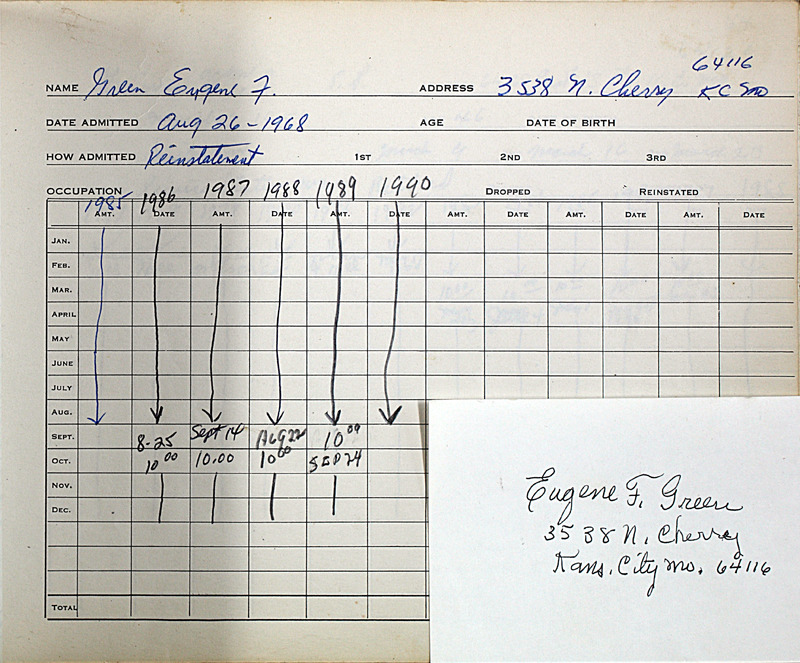 64116
NAME Green Eugene F. ADDRESS 3538 N. Cherry KC Mo
DATE ADMITTED Aug 26-1968 AGE DATE OF BIRTH
HOW ADMITTED Reinstatement 1ST 2ND 3RD
OCCUPATION DROPPED REINSTATED
1985 1986 1987 1988 1989 1990
AMT. DATE AMT. DATE AMT. DATE AMT. DATE AMT. DATE AMT. DATE
JAN.
FEB.
MAR.
APRIL
MAY
JUNE
JULY
AUG.
SEPT. 8-25 Sept 14 AUG 22 10 00
OCT. 10 00 10.00 10 00 SEP 24
NOV.
DEC.
TOTAL
Eugene F. Green
3538 N. Cherry
Kans. City Mo. 64116